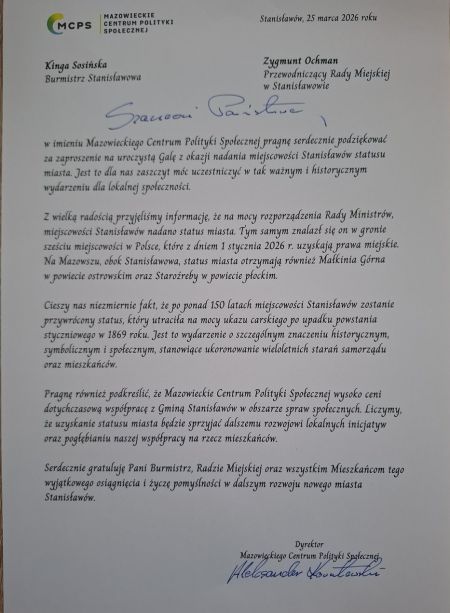 MCPS
MAZOWIECKIE
CENTRUM POLITYKI
SPOŁECZNEJ
Stanisławów, 25 marca 2026 roku
Kinga Sosińska
Burmistrz Stanisławowa
Zygmunt Ochman
Przewodniczący Rady Miejskiej
w Stanisławowie
Szanowni Państwo,
w imieniu Mazowieckiego Centrum Polityki Społecznej pragnę serdecznie podziękować
za zaproszenie na uroczystą Galę z okazji nadania miejscowości Stanisławów statusu
miasta. Jest to dla nas zaszczyt móc uczestniczyć w tak ważnym i historycznym
wydarzeniu dla lokalnej społeczności.
Z wielką radością przyjęliśmy informację, że na mocy rozporządzenia Rady Ministrów,
miejscowości Stanisławów nadano status miasta. Tym samym znalazł się on w gronie
sześciu miejscowości w Polsce, które z dniem 1 stycznia 2026 r. uzyskają prawa miejskie.
Na Mazowszu, obok Stanisławowa, status miasta otrzymają również Małkinia Górna
w powiecie ostrowskim oraz Staroźreby w powiecie płockim.
Cieszy nas niezmiernie fakt, że po ponad 150 latach miejscowości Stanisławów zostanie
przywrócony status, który utraciła na mocy ukazu carskiego po upadku powstania
styczniowego w 1869 roku. Jest to wydarzenie o szczególnym znaczeniu historycznym,
symbolicznym i społecznym, stanowiące ukoronowanie wieloletnich starań samorządu
oraz mieszkańców.
Pragnę również podkreślić, że Mazowieckie Centrum Polityki Społecznej wysoko ceni
dotychczasową współpracę z Gminą Stanisławów w obszarze spraw społecznych. Liczymy,
że uzyskanie statusu miasta będzie sprzyjać dalszemu rozwojowi lokalnych inicjatyw
oraz pogłębianiu naszej współpracy na rzecz mieszkańców.
Serdecznie gratuluję Pani Burmistrz, Radzie Miejskiej oraz wszystkim Mieszkańcom tego
wyjątkowego osiągnięcia i życzę pomyślności w dalszym rozwoju nowego miasta
Stanisławów.
Dyrektor
Mazowieckiego Centrum Polityki Społecznej
Aleksander Kornatowski